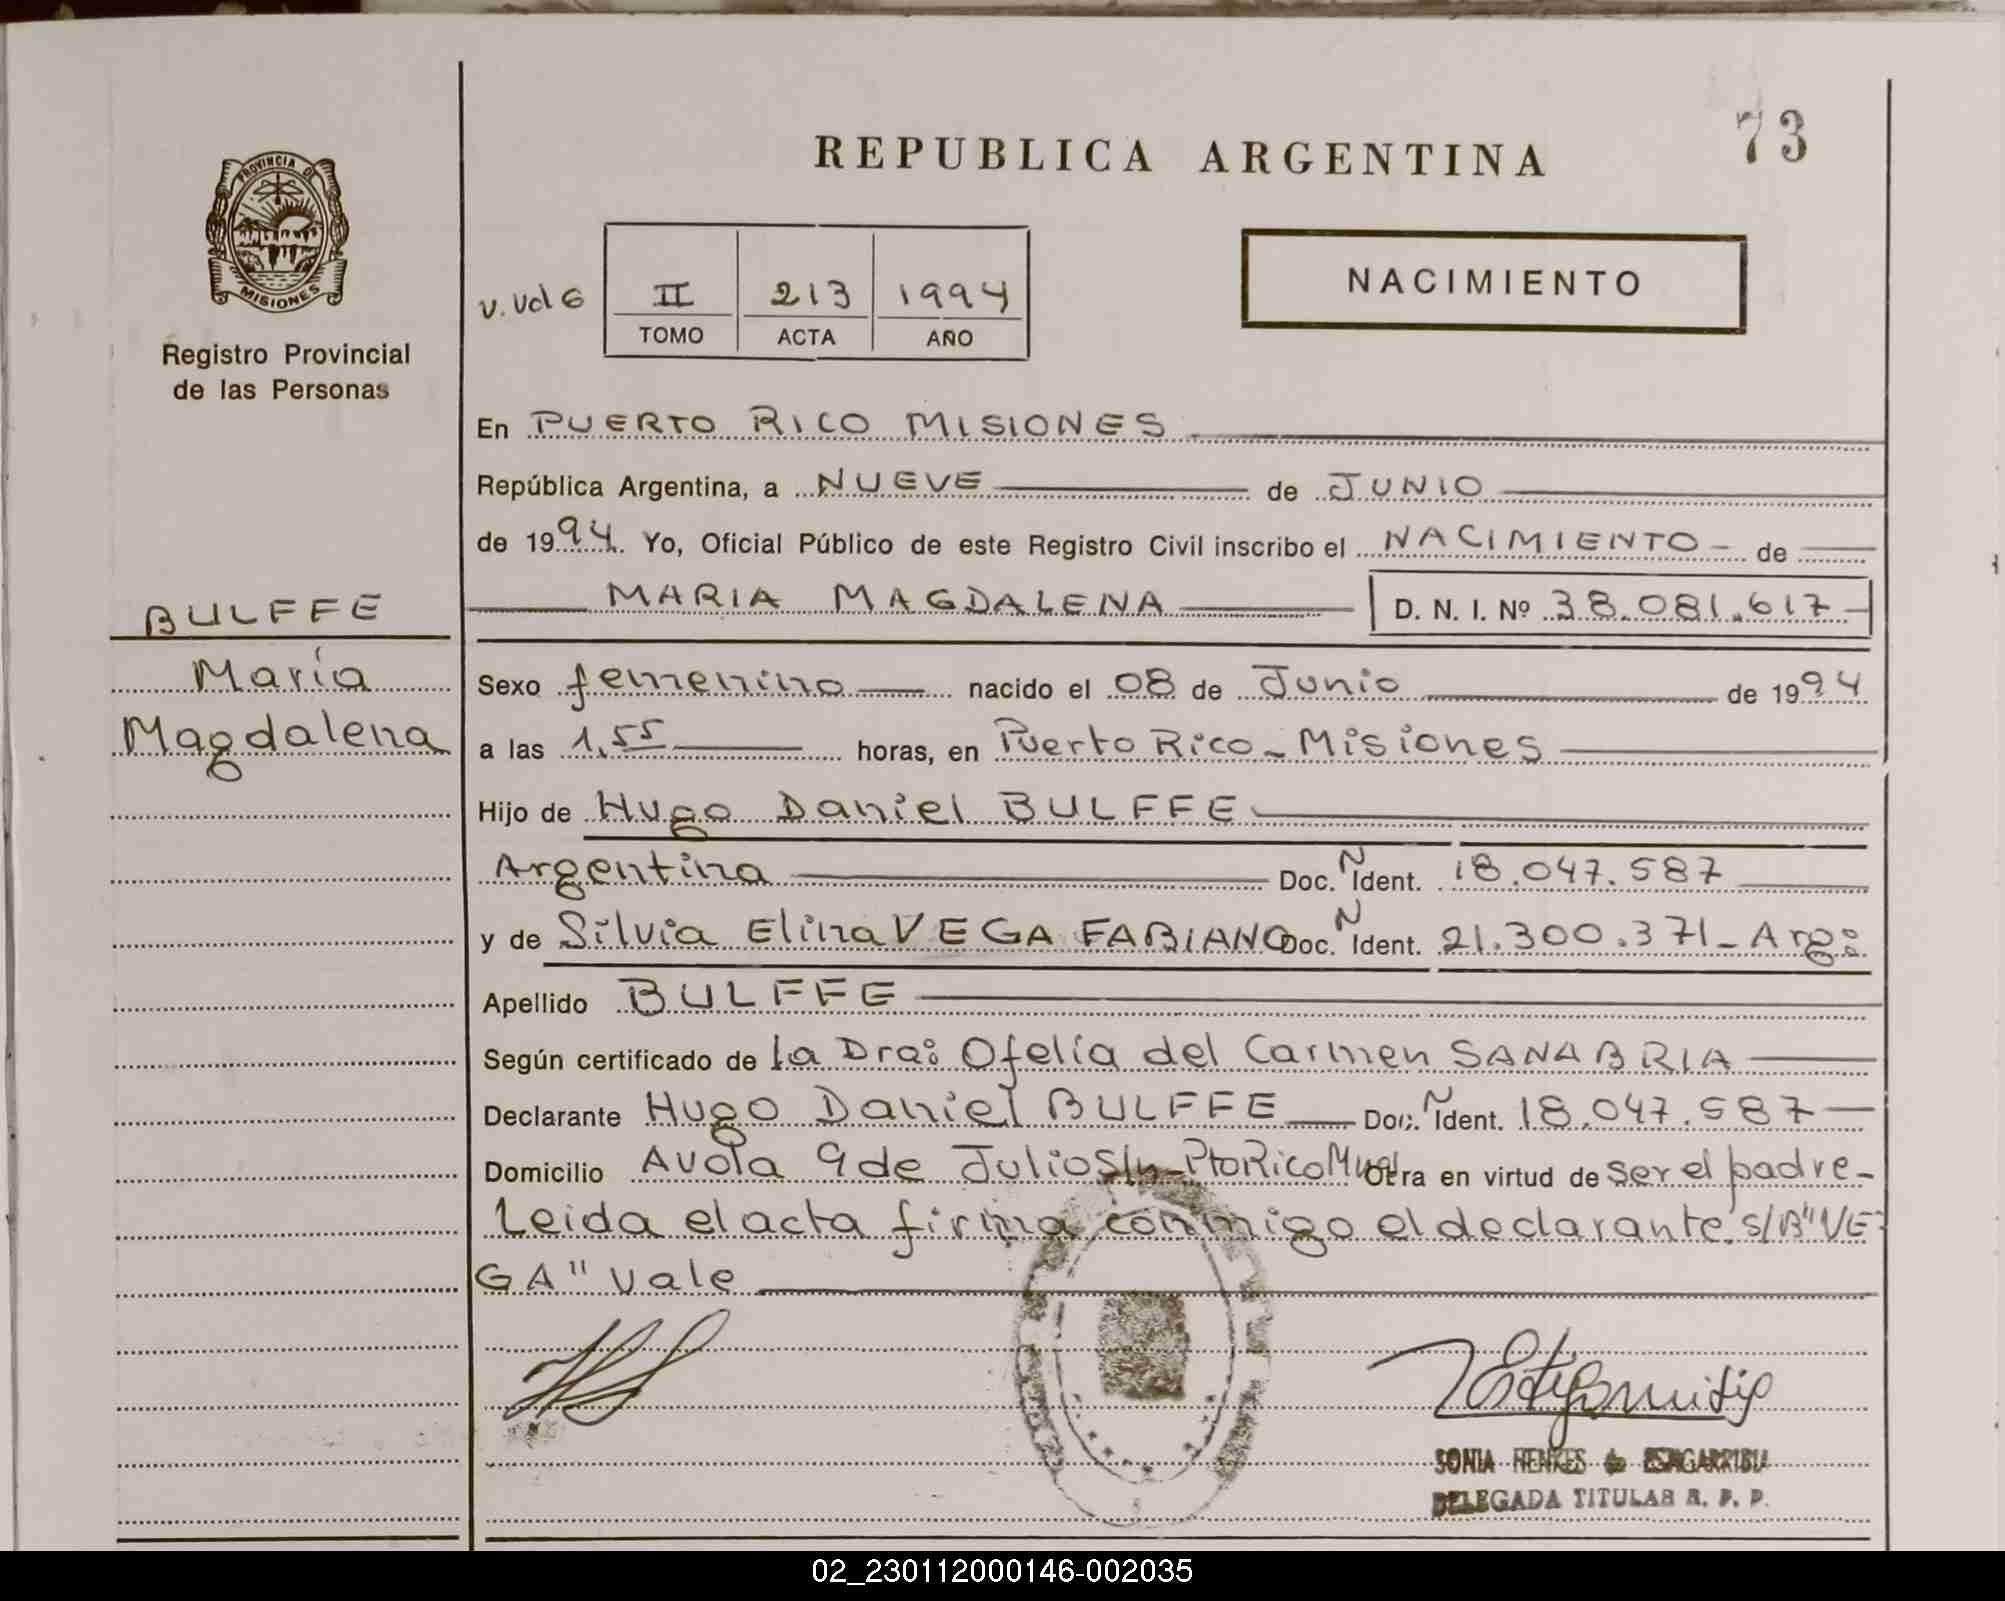 73
REPUBLICA ARGENTINA
PROVINCIA DE
MISIONES
Registro Provincial
de las Personas
NACIMIENTO
II 213 1994
TOMO ACTA AÑO
En PUERTO RICO MISIONES
República Argentina, a NUEVE de JUNIO
de 1994. Yo, Oficial Público de este Registro Civil inscribo el NACIMIENTO de
MARIA MAGDALENA D. N. I. Nº 38.081.617
BULFFE
María
Magdalena
Sexo femenino nacido el 08 de Junio de 1994
a las 1,55 horas, en Puerto Rico - Misiones
Hijo de Hugo Daniel BULFFE
Argentina Doc. N Ident. 18.047.587
y de Silvia Elina VEGA FABIANO Doc. N Ident. 21.300.371 - Arg:
Apellido BULFFE
Según certificado de la Dra: Ofelia del Carmen SANABRIA
Declarante Hugo Daniel BULFFE Doc. N Ident. 18.047.587
Domicilio Avda 9 de Julio S/n - Pto Rico Mnes Otra en virtud de ser el padre -
Leida el acta firma conmigo el declarante. S/B "VE
GA" Vale
SONIA HENKES de
DELEGADA TITULAR R. P. P.
02_230112000146-002035